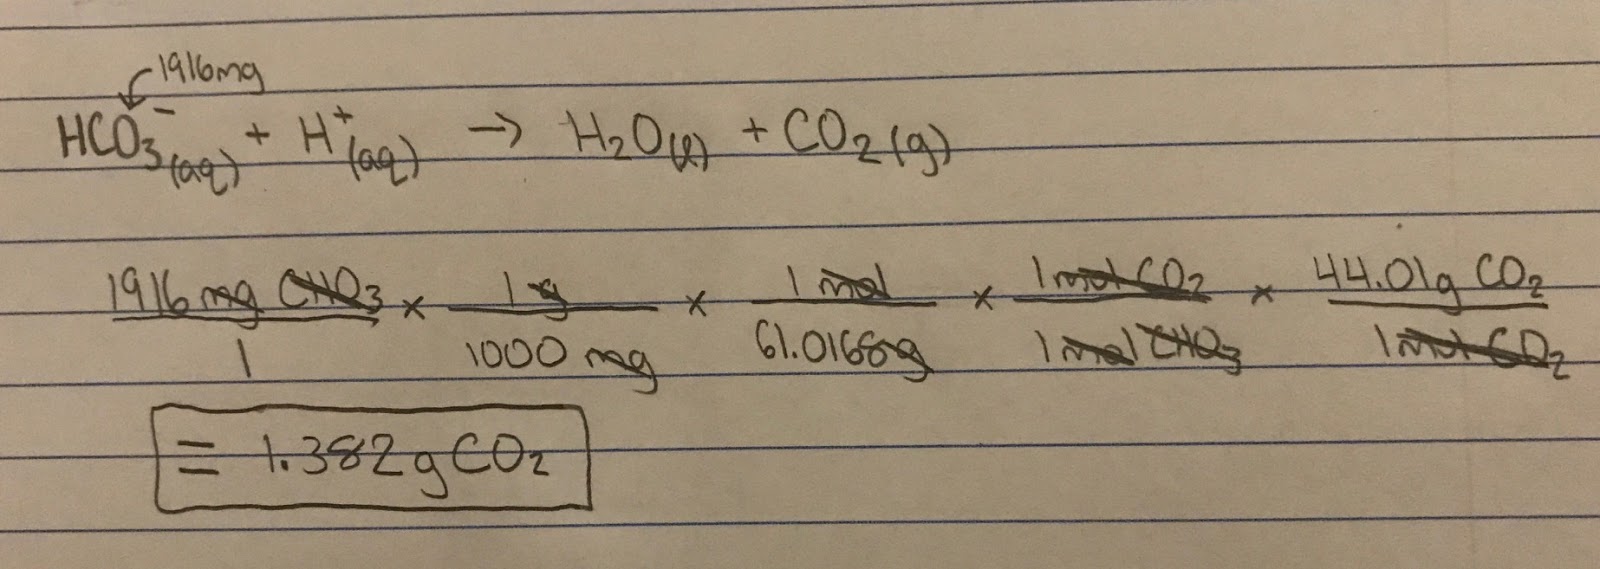 1916mg
HCO₃⁻(aq) + H⁺(aq) → H₂O(l) + CO₂(g)
1916 mg CHO₃/1 × 1 g/1000 mg × 1 mol/61.0168g × 1 mol CO₂/1 mol CHO₃ × 44.01g CO₂/1 mol CO₂
= 1.382g CO₂